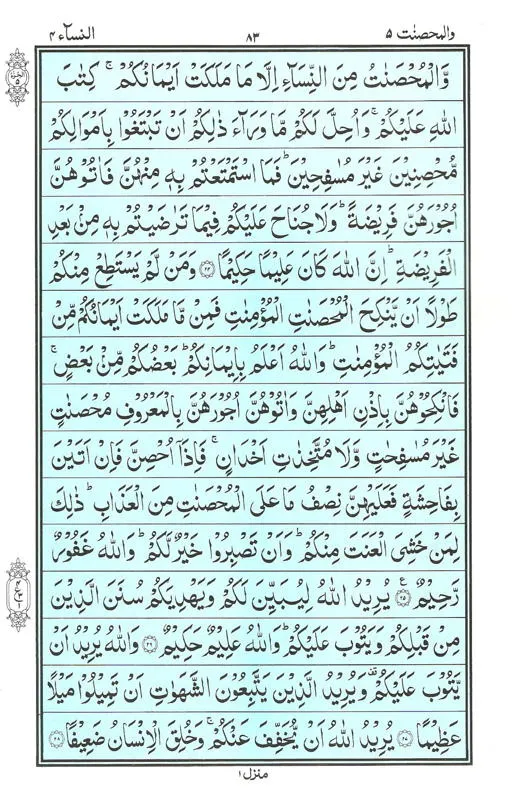 والمحصنت ۵
۸۳
النسآء ۴
وَّالْمُحْصَنٰتُ مِنَ النِّسَآءِ اِلَّا مَا مَلَكَتْ اَيْمَانُكُمْ ۚ كِتٰبَ
اللّٰهِ عَلَيْكُمْ ۚ وَاُحِلَّ لَكُمْ مَّا وَرَآءَ ذٰلِكُمْ اَنْ تَبْتَغُوْا بِاَمْوَالِكُمْ
مُّحْصِنِيْنَ غَيْرَ مُسٰفِحِيْنَ ؕ فَمَا اسْتَمْتَعْتُمْ بِهٖ مِنْهُنَّ فَاٰتُوْهُنَّ
اُجُوْرَهُنَّ فَرِيْضَةً ؕ وَلَا جُنَاحَ عَلَيْكُمْ فِيْمَا تَرٰضَيْتُمْ بِهٖ مِنْۢ بَعْدِ
الْفَرِيْضَةِ ؕ اِنَّ اللّٰهَ كَانَ عَلِيْمًا حَكِيْمًا ﴿۲۴﴾ وَمَنْ لَّمْ يَسْتَطِعْ مِنْكُمْ
طَوْلًا اَنْ يَّنْكِحَ الْمُحْصَنٰتِ الْمُؤْمِنٰتِ فَمِنْ مَّا مَلَكَتْ اَيْمَانُكُمْ مِّنْ
فَتَيٰتِكُمُ الْمُؤْمِنٰتِ ؕ وَاللّٰهُ اَعْلَمُ بِاِيْمَانِكُمْ ؕ بَعْضُكُمْ مِّنْۢ بَعْضٍ ۚ
فَانْكِحُوْهُنَّ بِاِذْنِ اَهْلِهِنَّ وَاٰتُوْهُنَّ اُجُوْرَهُنَّ بِالْمَعْرُوْفِ مُحْصَنٰتٍ
غَيْرَ مُسٰفِحٰتٍ وَّلَا مُتَّخِذٰتِ اَخْدَانٍ ۚ فَاِذَاۤ اُحْصِنَّ فَاِنْ اَتَيْنَ
بِفَاحِشَةٍ فَعَلَيْهِنَّ نِصْفُ مَا عَلَى الْمُحْصَنٰتِ مِنَ الْعَذَابِ ؕ ذٰلِكَ
لِمَنْ خَشِيَ الْعَنَتَ مِنْكُمْ ؕ وَاَنْ تَصْبِرُوْا خَيْرٌ لَّكُمْ ؕ وَاللّٰهُ غَفُوْرٌ
رَّحِيْمٌ ﴿۲۵﴾ يُرِيْدُ اللّٰهُ لِيُبَيِّنَ لَكُمْ وَيَهْدِيَكُمْ سُنَنَ الَّذِيْنَ
مِنْ قَبْلِكُمْ وَيَتُوْبَ عَلَيْكُمْ ؕ وَاللّٰهُ عَلِيْمٌ حَكِيْمٌ ﴿۲۶﴾ وَاللّٰهُ يُرِيْدُ اَنْ
يَّتُوْبَ عَلَيْكُمْ ۟ وَيُرِيْدُ الَّذِيْنَ يَتَّبِعُوْنَ الشَّهَوٰتِ اَنْ تَمِيْلُوْا مَيْلًا
عَظِيْمًا ﴿۲۷﴾ يُرِيْدُ اللّٰهُ اَنْ يُّخَفِّفَ عَنْكُمْ ۚ وَخُلِقَ الْاِنْسَانُ ضَعِيْفًا ﴿۲۸﴾
منزل ۱